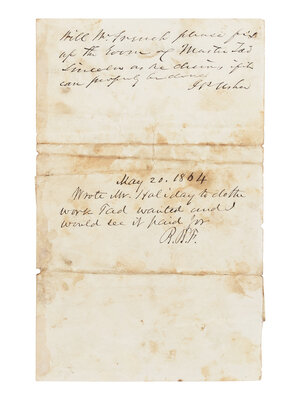 Will Mr French please fix
up the room of Master Tad
Lincoln as he desires, if it
can properly be done
Jno Usher
May 20. 1864
Wrote Mr. Haliday to do the
work Tad wanted and I
would see it paid for
B.B.F.